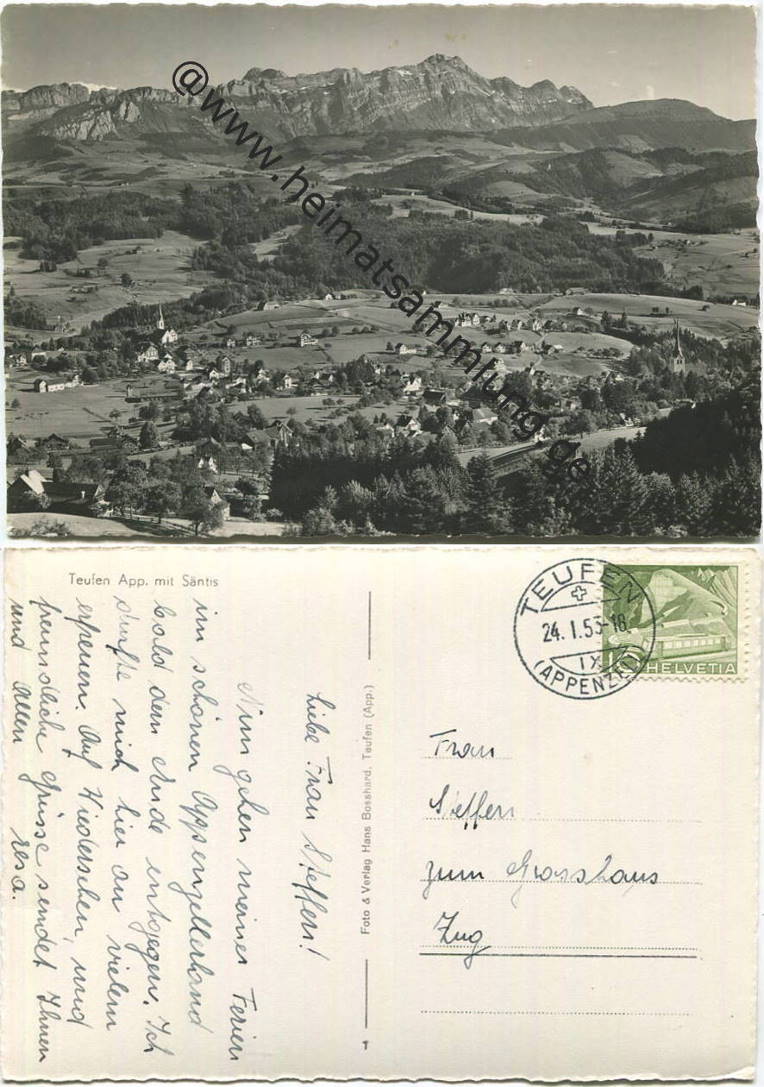 @www.heimatsammlung.de
Teufen App. mit Säntis
Liebe Frau Steffen!
Nun gehen meine Ferien
im schönen Appenzellerland
bald dem Ende entgegen. Ich
durfte mich hier an vielem
erfreuen. Auf Wiedersehen, und
freundliche Grüsse sendet Ihnen
und allen
Resa.
Foto & Verlag Hans Bosshard, Teufen (App.)
1
TEUFEN
24. I. 53-18
IX
(APPENZELL)
10 HELVETIA
Frau
Steffen
zum Grosshaus
Zug